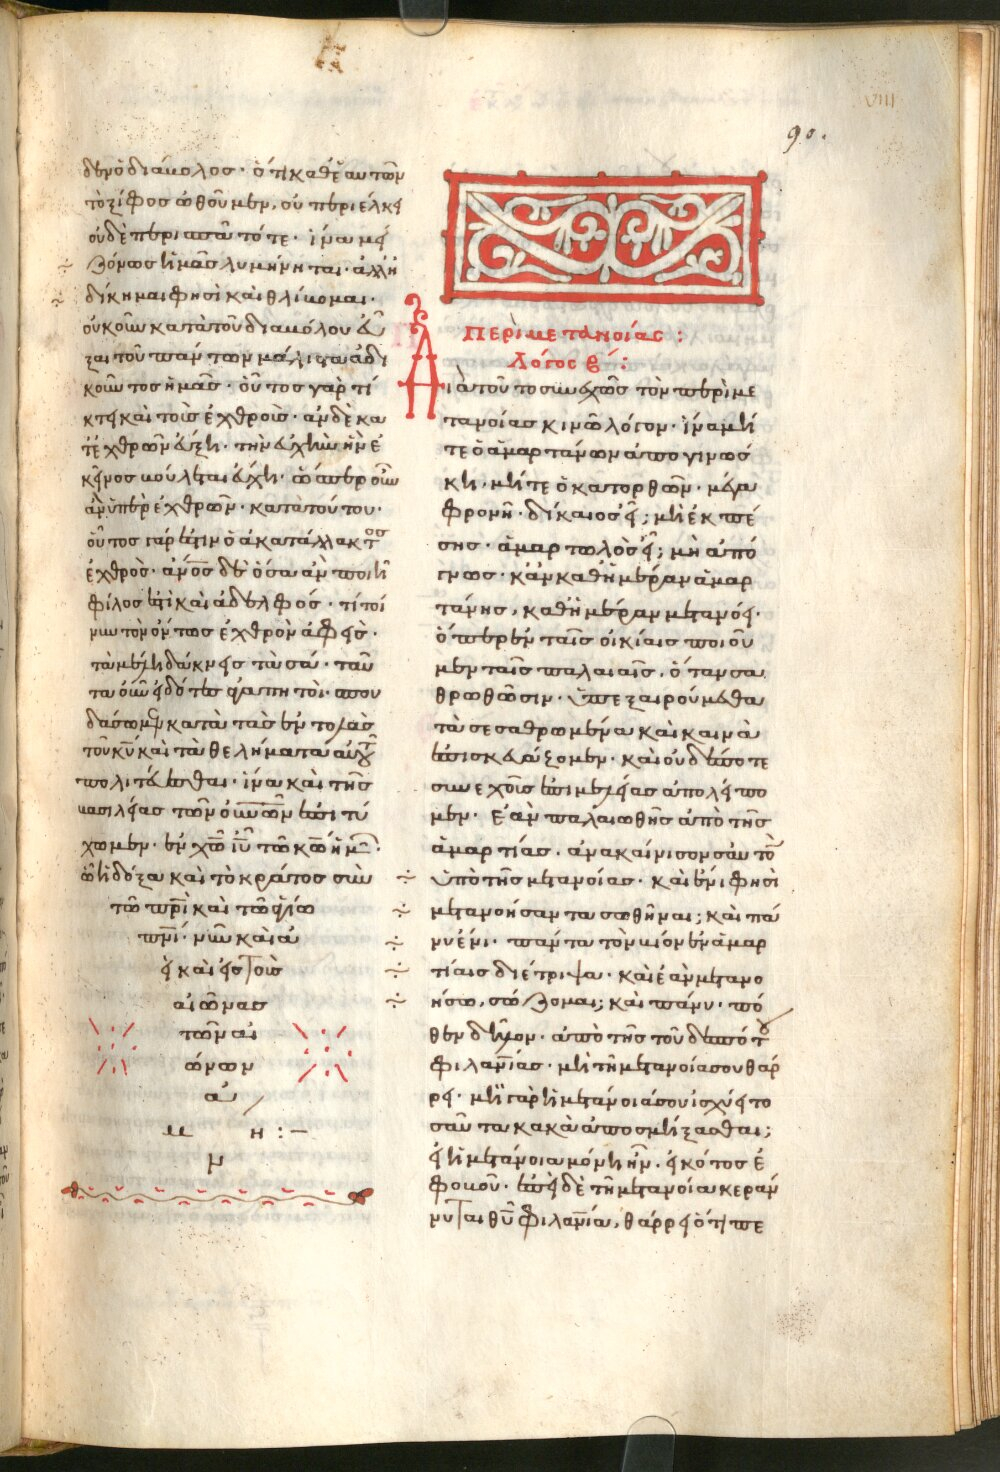 VIII
90.
δεν ὁ διάβολος· ὅτι καθ' ἑαυτῶν
τὸ ξίφος ὠθοῦμεν, οὐ περιέλκει
οὐδὲ περισπᾶ τότε· ἵνα μει
ζόνως ἡμᾶς λυμήνηται· ἀλλ' ἠ
δίκημαι φησὶ καὶ θλίβομαι·
οὐκοῦν κατὰ τοῦ διαβόλου εὖ
ξαι τοῦ πάντων μάλιστα ἀδι
κοῦντος ἡμᾶς· οὗτος γάρ τί
κτει καὶ τοὺς ἐχθρούς· ἂν δὲ κα
τ' ἐχθρῶν εὔξῃ· τὴν εὐχὴν ἣν ἐ
κεῖνος βούλεται εὔχῃ· ὥσπερ οὖν
ἂν ὑπὲρ ἐχθρῶν· κατὰ τούτου·
οὗτος γάρ ἐστιν ὁ ἀκατάλλακτος
ἐχθρός· ἀνος δὲ ὅσα ἂν ποιῇ
φίλος ἐστὶ καὶ ἀδελφός· τί τοί
νυν τὸν ὄντως ἐχθρὸν ἀφεὶς·
τὰ μέλη δάκνεις τὰ σά· ταῦ
τα οὖν εἰδότες ἀγαπητοὶ· σπου
δάσωμεν κατὰ τὰς ἐντολὰς
τοῦ κυ καὶ τὰ θελήματα αὐτοῦ
πολιτεύεσθαι· ἵνα καὶ τῆς
βασιλείας τῶν οὐνῶν ἐπιτύ
χωμεν· ἐν χω ιυ τῶ κω ἡμῶν·
ὧ ἡ δόξα καὶ τὸ κράτος σὺν
τῶ πρὶ καὶ τῶ ἁγίω
πνι· νῦν καὶ ἀ
εὶ καὶ εἰς τοὺς
αἰῶνας
τῶν αἰ
ώνων
ἀ
μ η :–
ν
Περὶ μετανοίας :
Λόγος β΄ :
Διὰ τοῦτο συνεχῶς τὸν περὶ με
τανοίας κινῶ λόγον· ἵνα μή
τε ὁ ἁμαρτάνων ἀπογινώσ
κῃ· μήτε ὁ κατορθῶν· μέγα
φρονῇ· δίκαιος εἶ; μὴ ἐκπέ
σῃς· ἁμαρτωλὸς εἶ; μὴ ἀπό
γνως· κἂν καθ' ἡμέραν ἁμαρ
τάνῃς, καθ' ἡμέραν μετανόει·
ὅπερ ἐν ταῖς οἰκίαις ποιοῦ
μεν ταῖς παλαιαῖς· ὅταν σα
θρωθῶσιν· ὑπεξαιρούμεθα
τὰ σεσαθρωμένα καὶ καινὰ
ἐπισκευάζομεν· καὶ οὐδέποτε
συνεχοῦς ἐπιμελείας ἀπολείπο
μεν· Ἐὰν παλαιωθῇς ἀπὸ τῆς
ἁμαρτίας· ἀνακαίνισον σαυτὸν
ὑπὸ τῆς μετανοίας· καὶ ἔνι φησὶ
μετανοήσαντα σωθῆναι; καὶ πά
νυ ἔνι· πάντα τὸν βίον ἐν ἁμαρ
τίαις διέτριψα· καὶ ἐὰν μετανο
ήσω, σώζομαι; καὶ πάνυ· πό
θεν δῆλον· ἀπὸ τῆς τοῦ δεσπότου
φιλανίας· μὴ τῇ μετανοία σου θάρ
ρει· μὴ γὰρ ἡ μετάνοιά σου ἰσχύει το
σαῦτα κακὰ ἀποσμήξασθαι;
εἰ ἡ μετάνοια μόνη ἦν· εἰκότως ἐ
φοβοῦ· ἐπεὶ δὲ τῇ μετανοία κεράν
νυται θυ φιλανία, θάρρει ὅτι πε